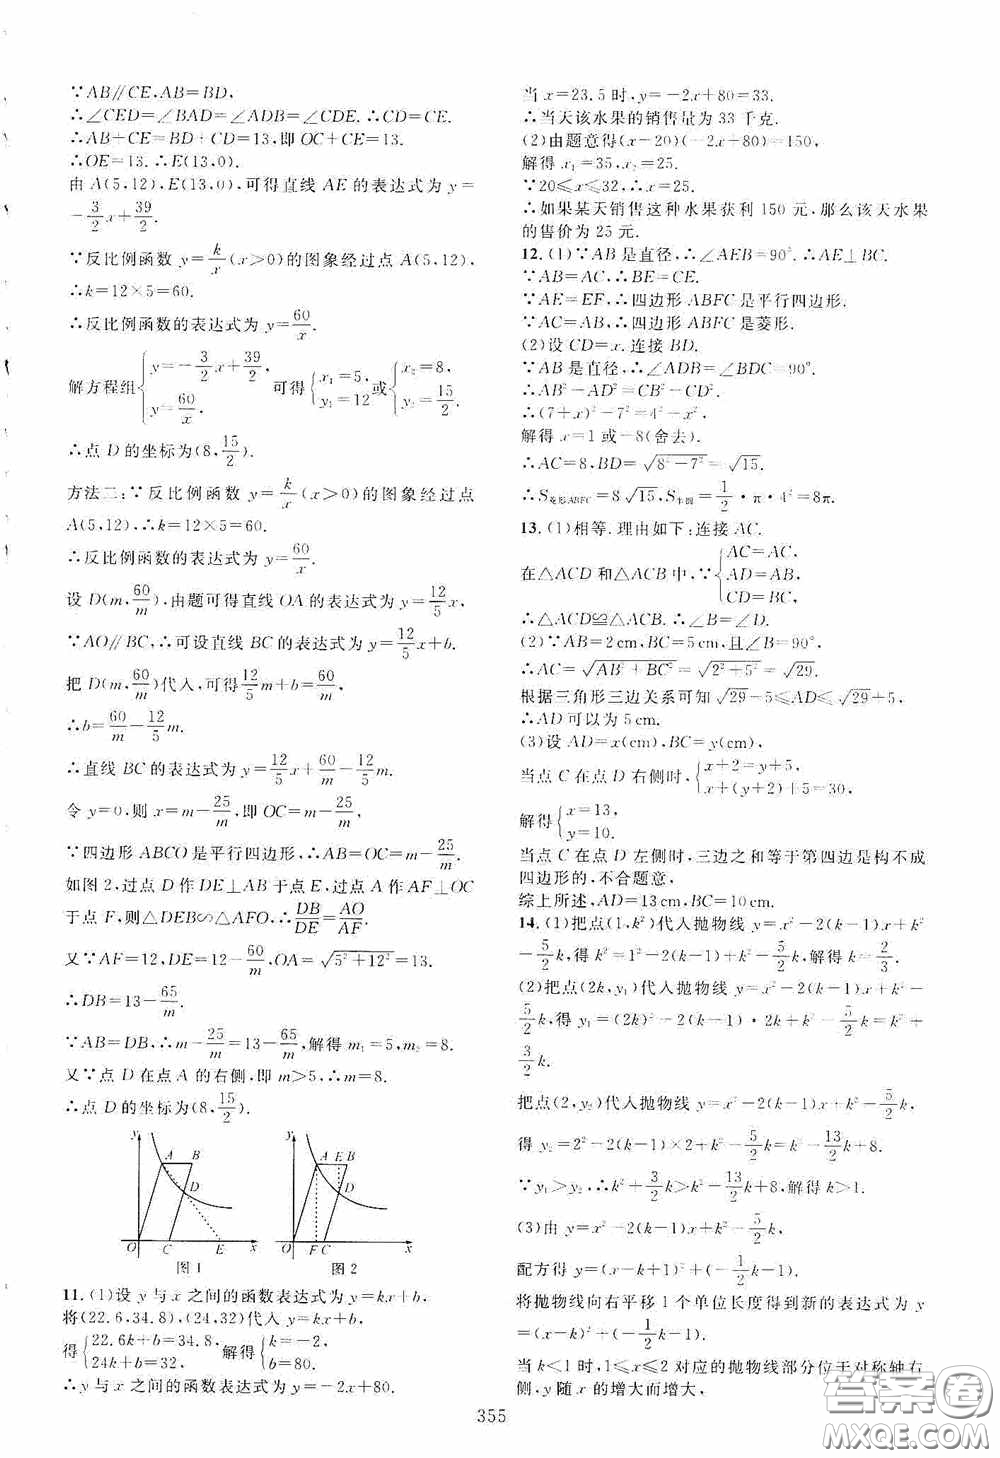 ∵AB∥CE,AB=BD,
∴∠CED=∠BAD=∠ADB=∠CDE.∴CD=CE.
∴AB+CE=BD+CD=13,即OC+CE=13.
∴OE=13.∴E(13,0).
由A(5,12),E(13,0),可得直线AE的表达式为y=
-3/2x+39/2.
∵反比例函数y=k/x(x>0)的图象经过点A(5,12),
∴k=12×5=60.
∴反比例函数的表达式为y=60/x.
解方程组{y=-3/2x+39/2, y=60/x, 可得{x₁=5, y₁=12 或{x₂=8, y₂=15/2.
∴点D的坐标为(8,15/2).
方法二:∵反比例函数y=k/x(x>0)的图象经过点
A(5,12),∴k=12×5=60.
∴反比例函数的表达式为y=60/x.
设D(m,60/m),由题可得直线OA的表达式为y=12/5x,
∵AO∥BC,∴可设直线BC的表达式为y=12/5x+b.
把D(m,60/m)代入,可得12/5m+b=60/m,
∴b=60/m-12/5m.
∴直线BC的表达式为y=12/5x+60/m-12/5m.
令y=0,则x=m-25/m,即OC=m-25/m,
∵四边形ABCO是平行四边形,∴AB=OC=m-25/m.
如图2,过点D作DE⊥AB于点E,过点A作AF⊥OC
于点F,则△DEB∽△AFO,∴DB/DE=AO/AF.
又∵AF=12,DE=12-60/m,OA=√(5²+12²)=13.
∴DB=13-65/m.
∵AB=DB,∴m-25/m=13-65/m,解得m₁=5,m₂=8.
又∵点D在点A的右侧,即m>5,∴m=8.
∴点D的坐标为(8,15/2).
y A B D O C E x
图1
y A E B D O F C x
图2
11.(1)设y与x之间的函数表达式为y=kx+b,
将(22.6,34.8),(24,32)代入y=kx+b,
得{22.6k+b=34.8, 24k+b=32, 解得{k=-2, b=80.
∴y与x之间的函数表达式为y=-2x+80.
当x=23.5时,y=-2x+80=33.
∴当天该水果的销售量为33千克.
(2)由题意得(x-20)(-2x+80)=150,
解得x₁=35,x₂=25.
∵20≤x≤32,∴x=25.
∴如果某天销售这种水果获利150元,那么该天水果
的售价为25元.
12.(1)∵AB是直径,∴∠AEB=90°.∴AE⊥BC.
∵AB=AC,∴BE=CE.
∵AE=EF,∴四边形ABFC是平行四边形.
∵AC=AB,∴四边形ABFC是菱形.
(2)设CD=x.连接BD.
∵AB是直径,∴∠ADB=∠BDC=90°.
∴AB²-AD²=CB²-CD².
∴(7+x)²-7²=4²-x².
解得x=1或-8(舍去).
∴AC=8,BD=√(8²-7²)=√15.
∴S菱形ABFC=8√15,S半圆=1/2·π·4²=8π.
13.(1)相等.理由如下:连接AC.
在△ACD和△ACB中,∵{AC=AC, AD=AB, CD=BC,
∴△ACD≌△ACB.∴∠B=∠D.
(2)∵AB=2cm,BC=5cm,且∠B=90°,
∴AC=√(AB²+BC²)=√(2²+5²)=√29.
根据三角形三边关系可知√29-5≤AD≤√29+5,
∴AD可以为5cm.
(3)设AD=x(cm),BC=y(cm),
当点C在点D右侧时,{x+2=y+5, x+(y+2)+5=30,
解得{x=13, y=10.
当点C在点D左侧时,三边之和等于第四边是构不成
四边形的,不合题意,
综上所述,AD=13cm,BC=10cm.
14.(1)把点(1,k²)代入抛物线y=x²-2(k-1)x+k²
-5/2k,得k²=1²-2(k-1)+k²-5/2k,解得k=2/3.
(2)把点(2k,y₁)代入抛物线y=x²-2(k-1)x+k²-
5/2k,得y₁=(2k)²-2(k-1)·2k+k²-5/2k=k²+
3/2k.
把点(2,y₂)代入抛物线y=x²-2(k-1)x+k²-5/2k,
得y₂=2²-2(k-1)×2+k²-5/2k=k²-13/2k+8.
∵y₁>y₂,∴k²+3/2k>k²-13/2k+8,解得k>1.
(3)由y=x²-2(k-1)x+k²-5/2k,
配方得y=(x-k+1)²+(-1/2k-1).
将抛物线向右平移1个单位长度得到新的表达式为y
=(x-k)²+(-1/2k-1).
当k<1时,1≤x≤2对应的抛物线部分位于对称轴右
侧,y随x的增大而增大,
355
答案圈
MXQE.COM